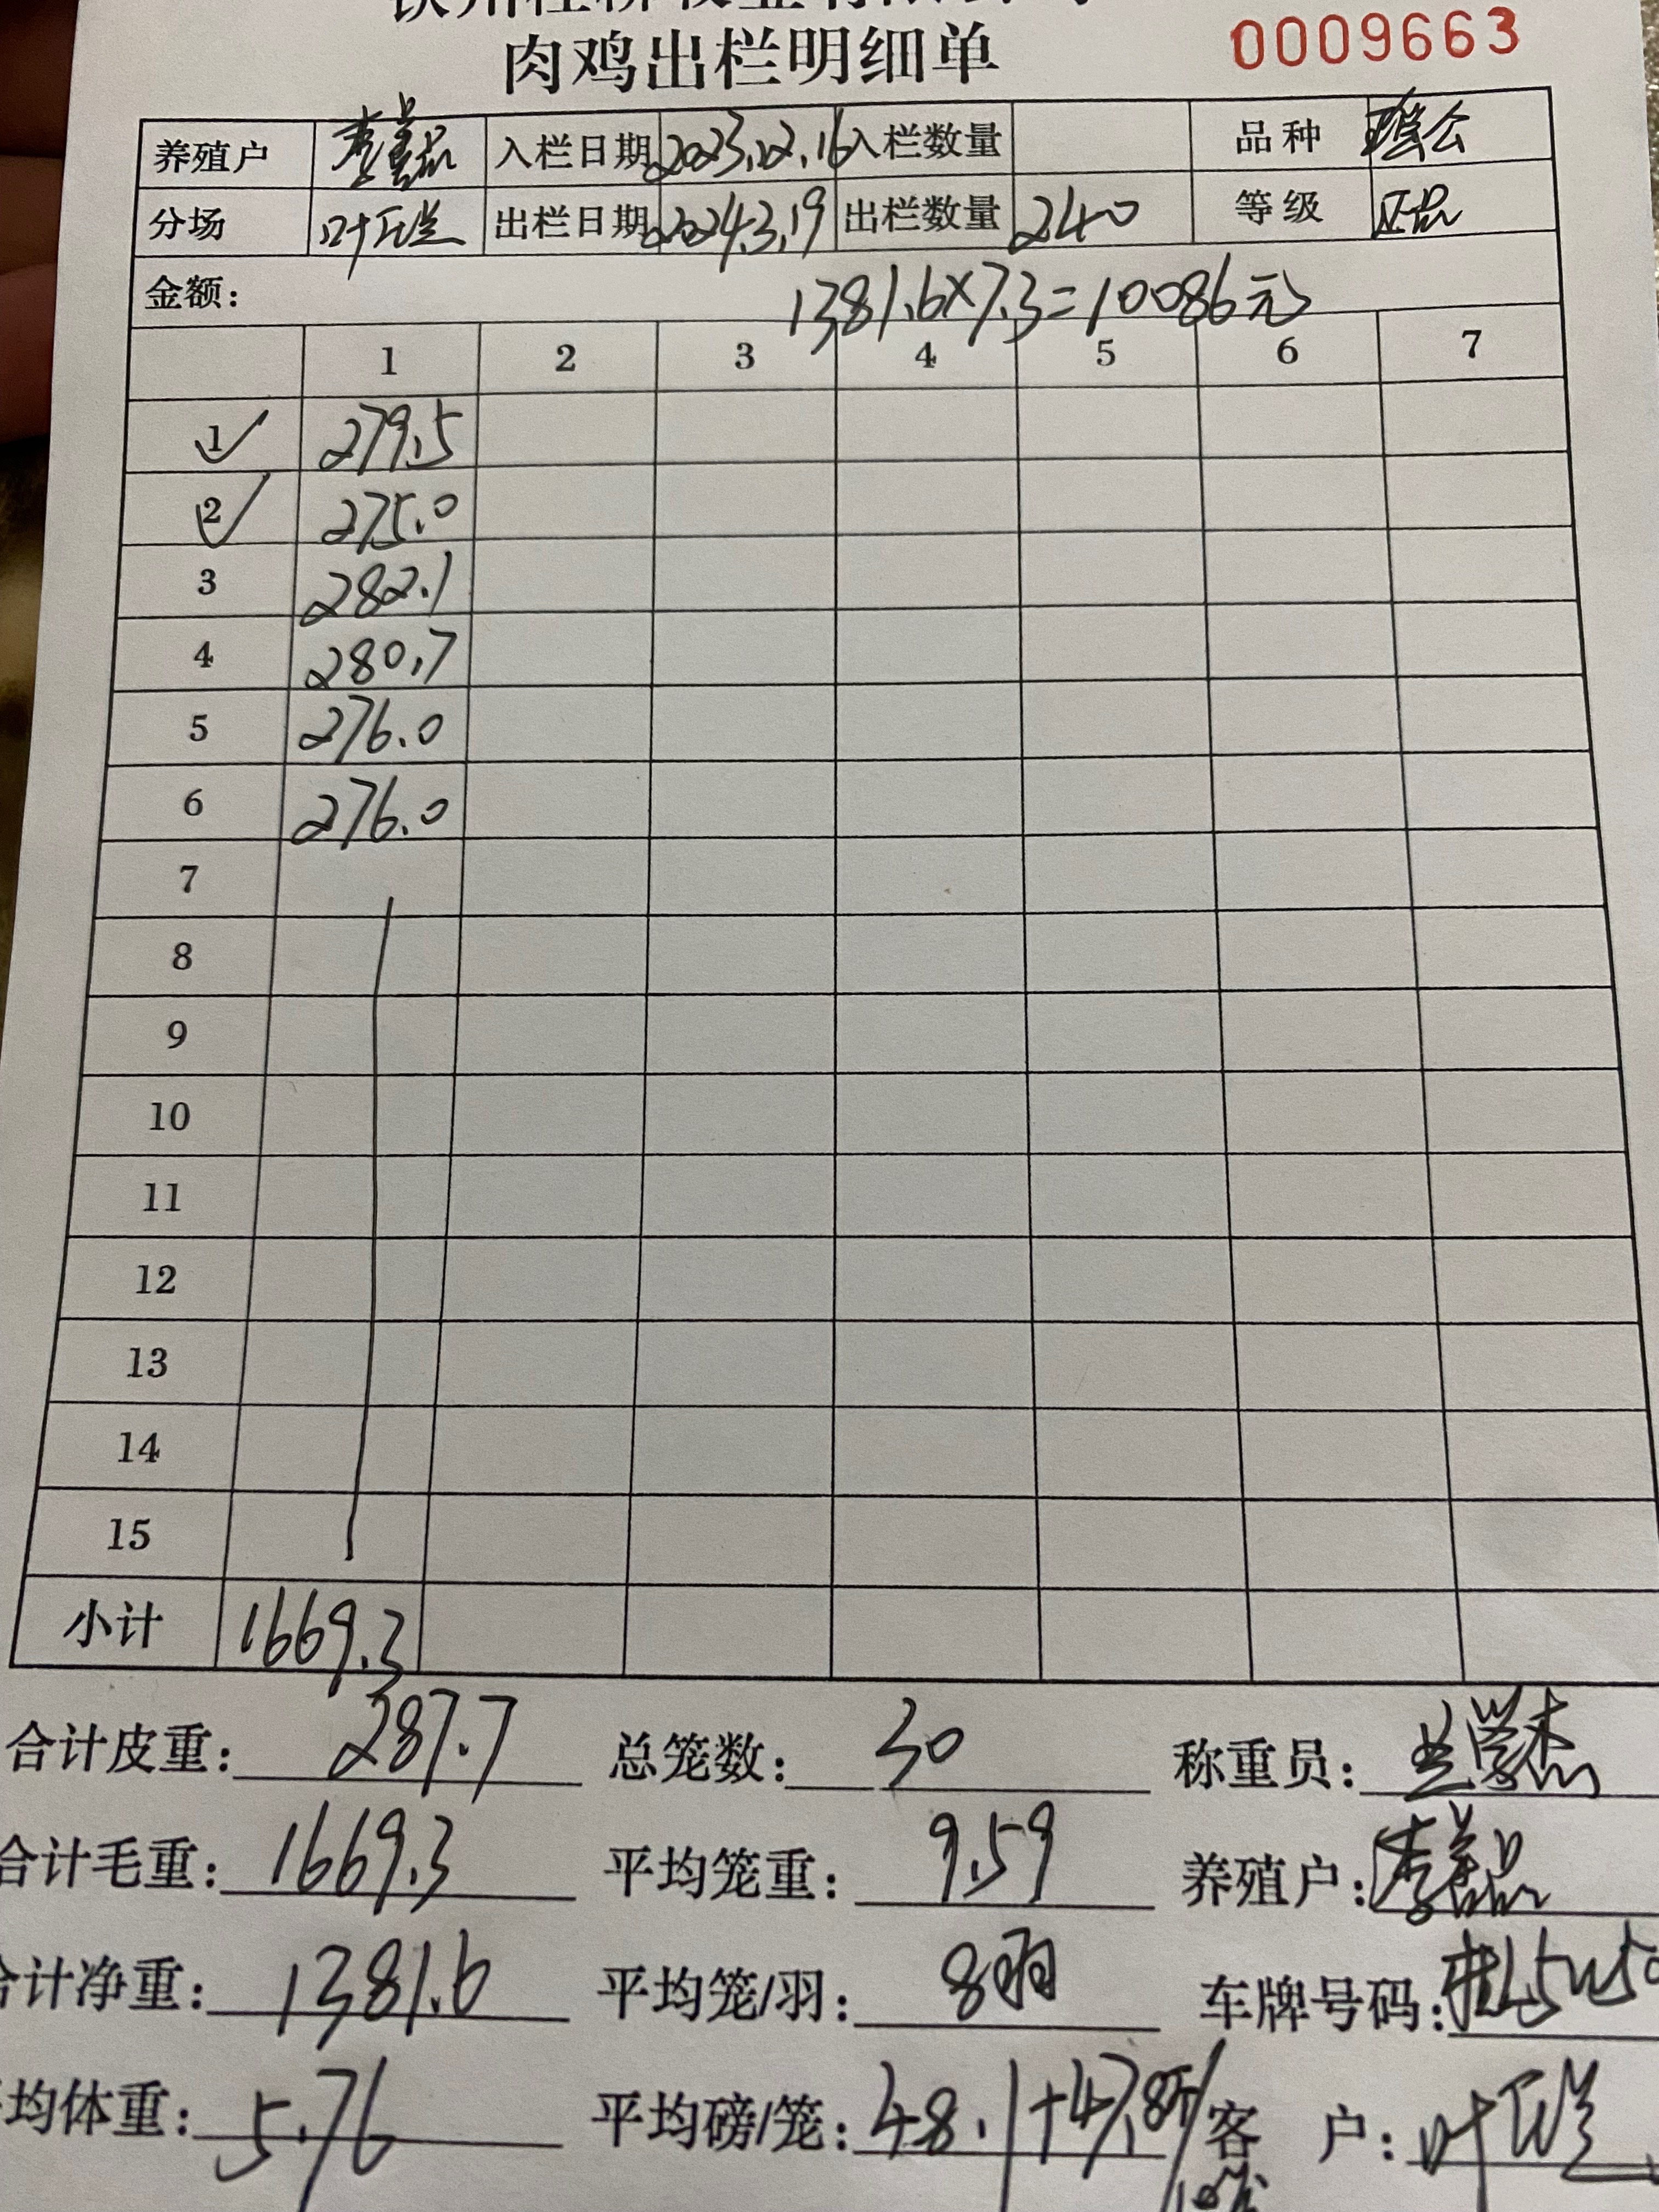 肉鸡出栏明细单
0009663
养殖户 李善品 入栏日期 2023.12.16 入栏数量 品种
分场 出栏日期 2024.3.19 出栏数量 240 等级 正品
金额: 1381.6×7.3=10086元
1 2 3 4 5 6 7
1 279.5
2 275.0
3 282.1
4 280.7
5 276.0
6 276.0
7
8
9
10
11
12
13
14
15
小计 1669.3
合计皮重: 287.7 总笼数: 30 称重员:
合计毛重: 1669.3 平均笼重: 9.59 养殖户: 李善品
合计净重: 1381.6 平均笼/羽: 8羽 车牌号码:
均体重: 5.76 平均磅/笼: 48.1+47.8 客 户: